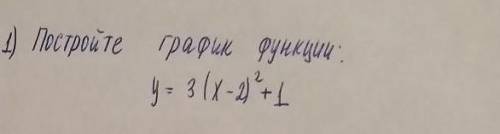 1) Постройте график функции:
y = 3(x-2)²+1